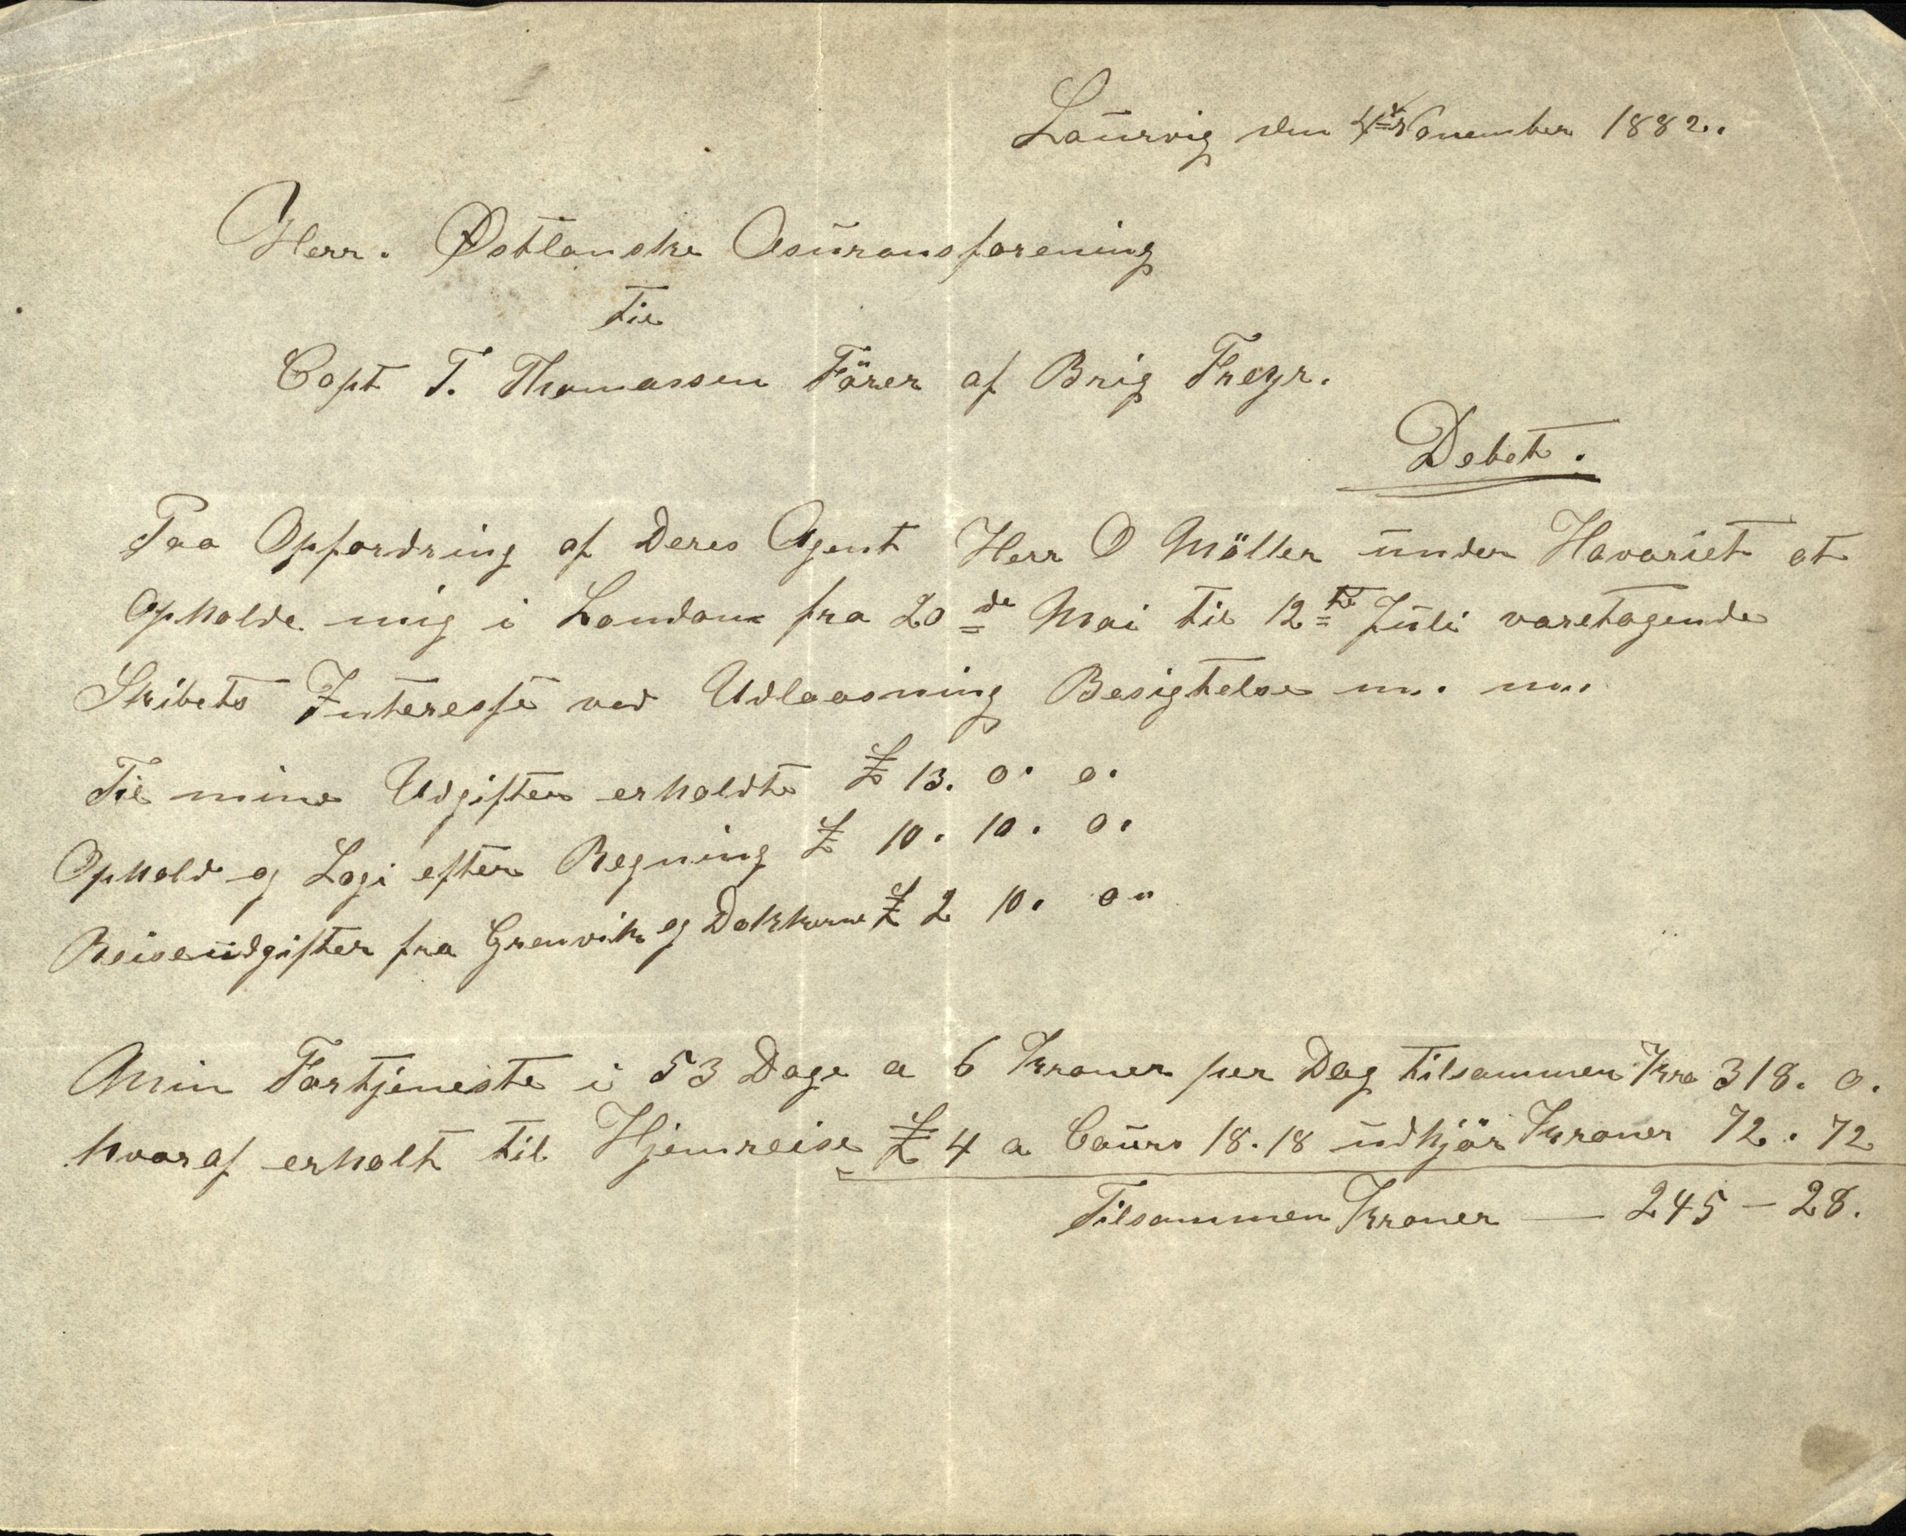 Laurvig den 4de November 1882.
Herr. Østlanske Asuransforening
til
Capt T. Thomassen Förer af Brig Freyr.
Debet.
Paa Opfordring af Deres Agent Herr O Möller under Havariet at
Opholde mig i London fra 20de Mai til 12te Juli varetagende
Skibets Interesse ved Udlaasning Besigtelse m. m.
Til mine Udgifter erholdt £ 13. 0. 0.
Ophold og Logi efter Regning £ 10. 10. 0.
Reiseudgifter fra Grenvik og Dokkerne £ 2 10. 0"
Min Fortjeneste i 53 Dage a 6 Kroner per Dag tilsammen Kro 318. 0.
hvoraf erholt til Hjemreise £ 4 a Cours 18.18 udkjör Kroner 72. 72
Tilsammen Kroner — 245 - 28.